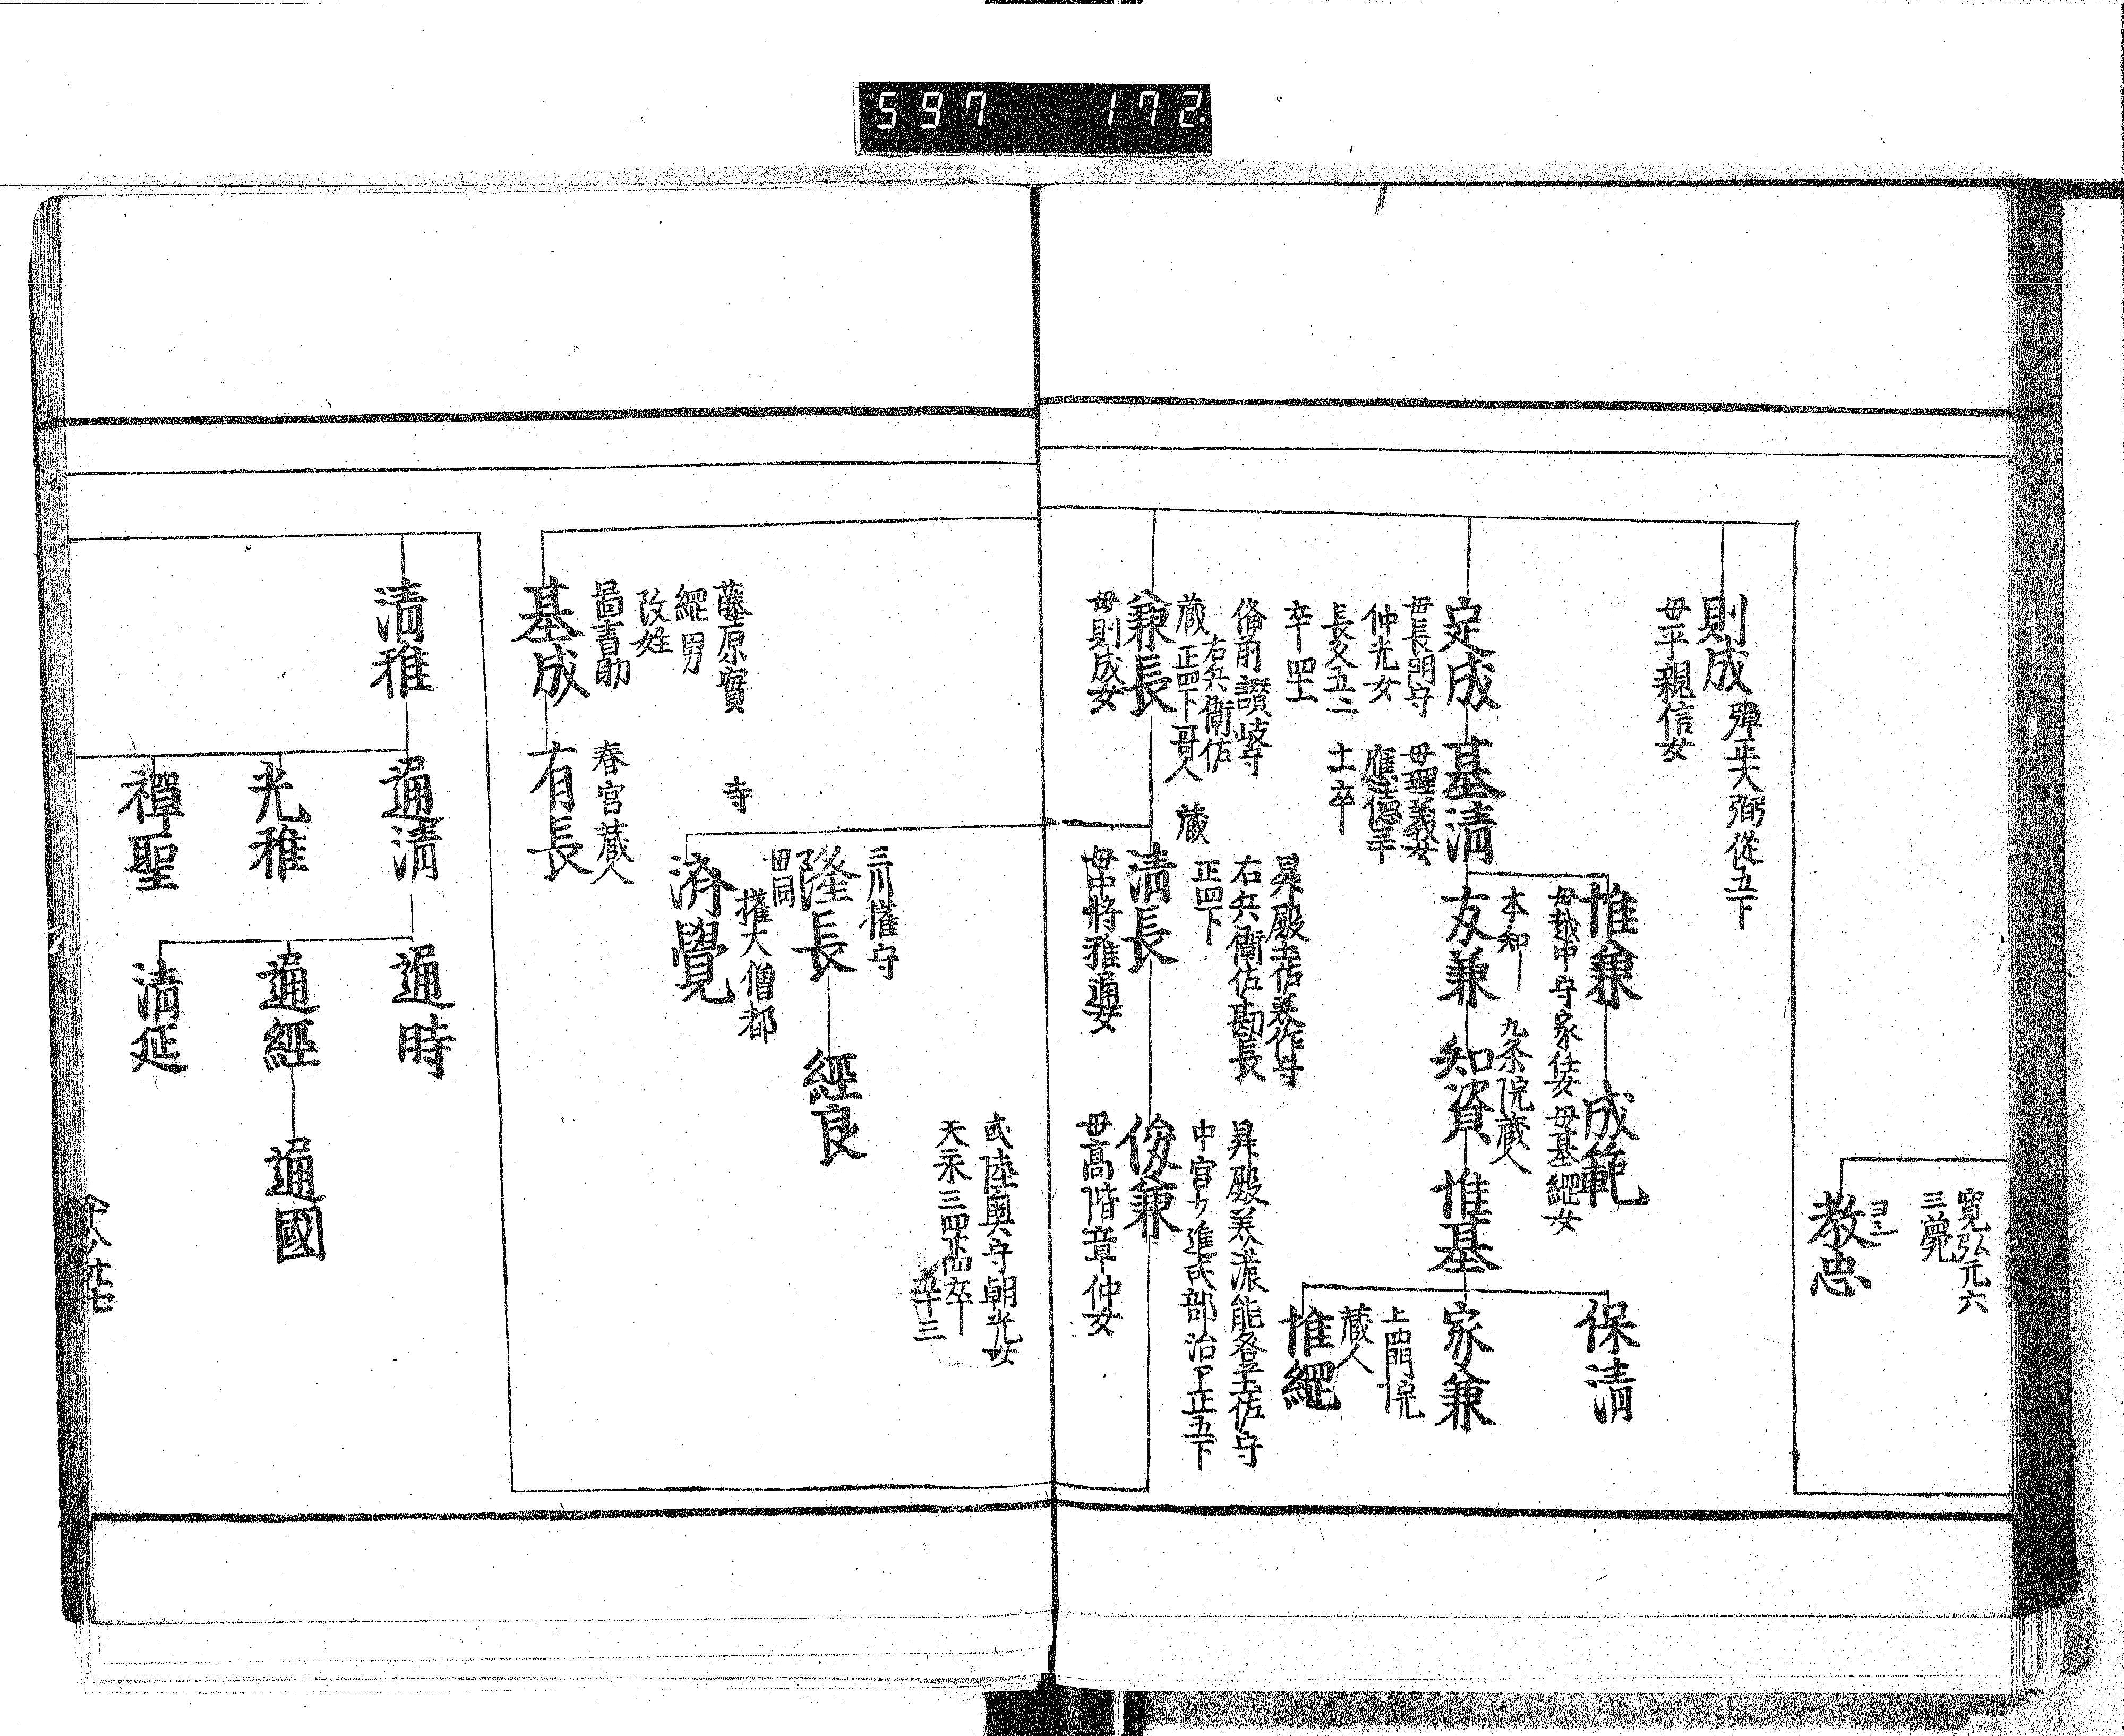 597 172.
寛弘元六
三薨
教忠
則成
弾正大弼従五下
毋平親信女
定成
毋長門守
仲光女
長久五二
卒
基清
毋理義女
應徳三
土卒
惟兼
毋越中守家任女
成範
毋基經女
友兼
本知
知資
九条院蔵人
惟基
保清
家兼
上西門院
蔵人
惟經
兼長
備前讃岐守
右兵衛佐
蔵正四下哥人
毋則成女
清長
昇殿土佐美作守
右兵衛佐勘長
蔵正四下
毋中将雅通女
俊兼
昇殿美濃能登土佐守
中宮少進式部治卩正五下
毋高階章仲女
式陸奥守朝光女
隆長
三川権守
毋同
經良
済覺
寺
権大僧都
基成
藤原實
經男
改姓
啚書助
有長
春宮蔵人
清雅
通清
光雅
禪聖
通時
通經
清延
通國